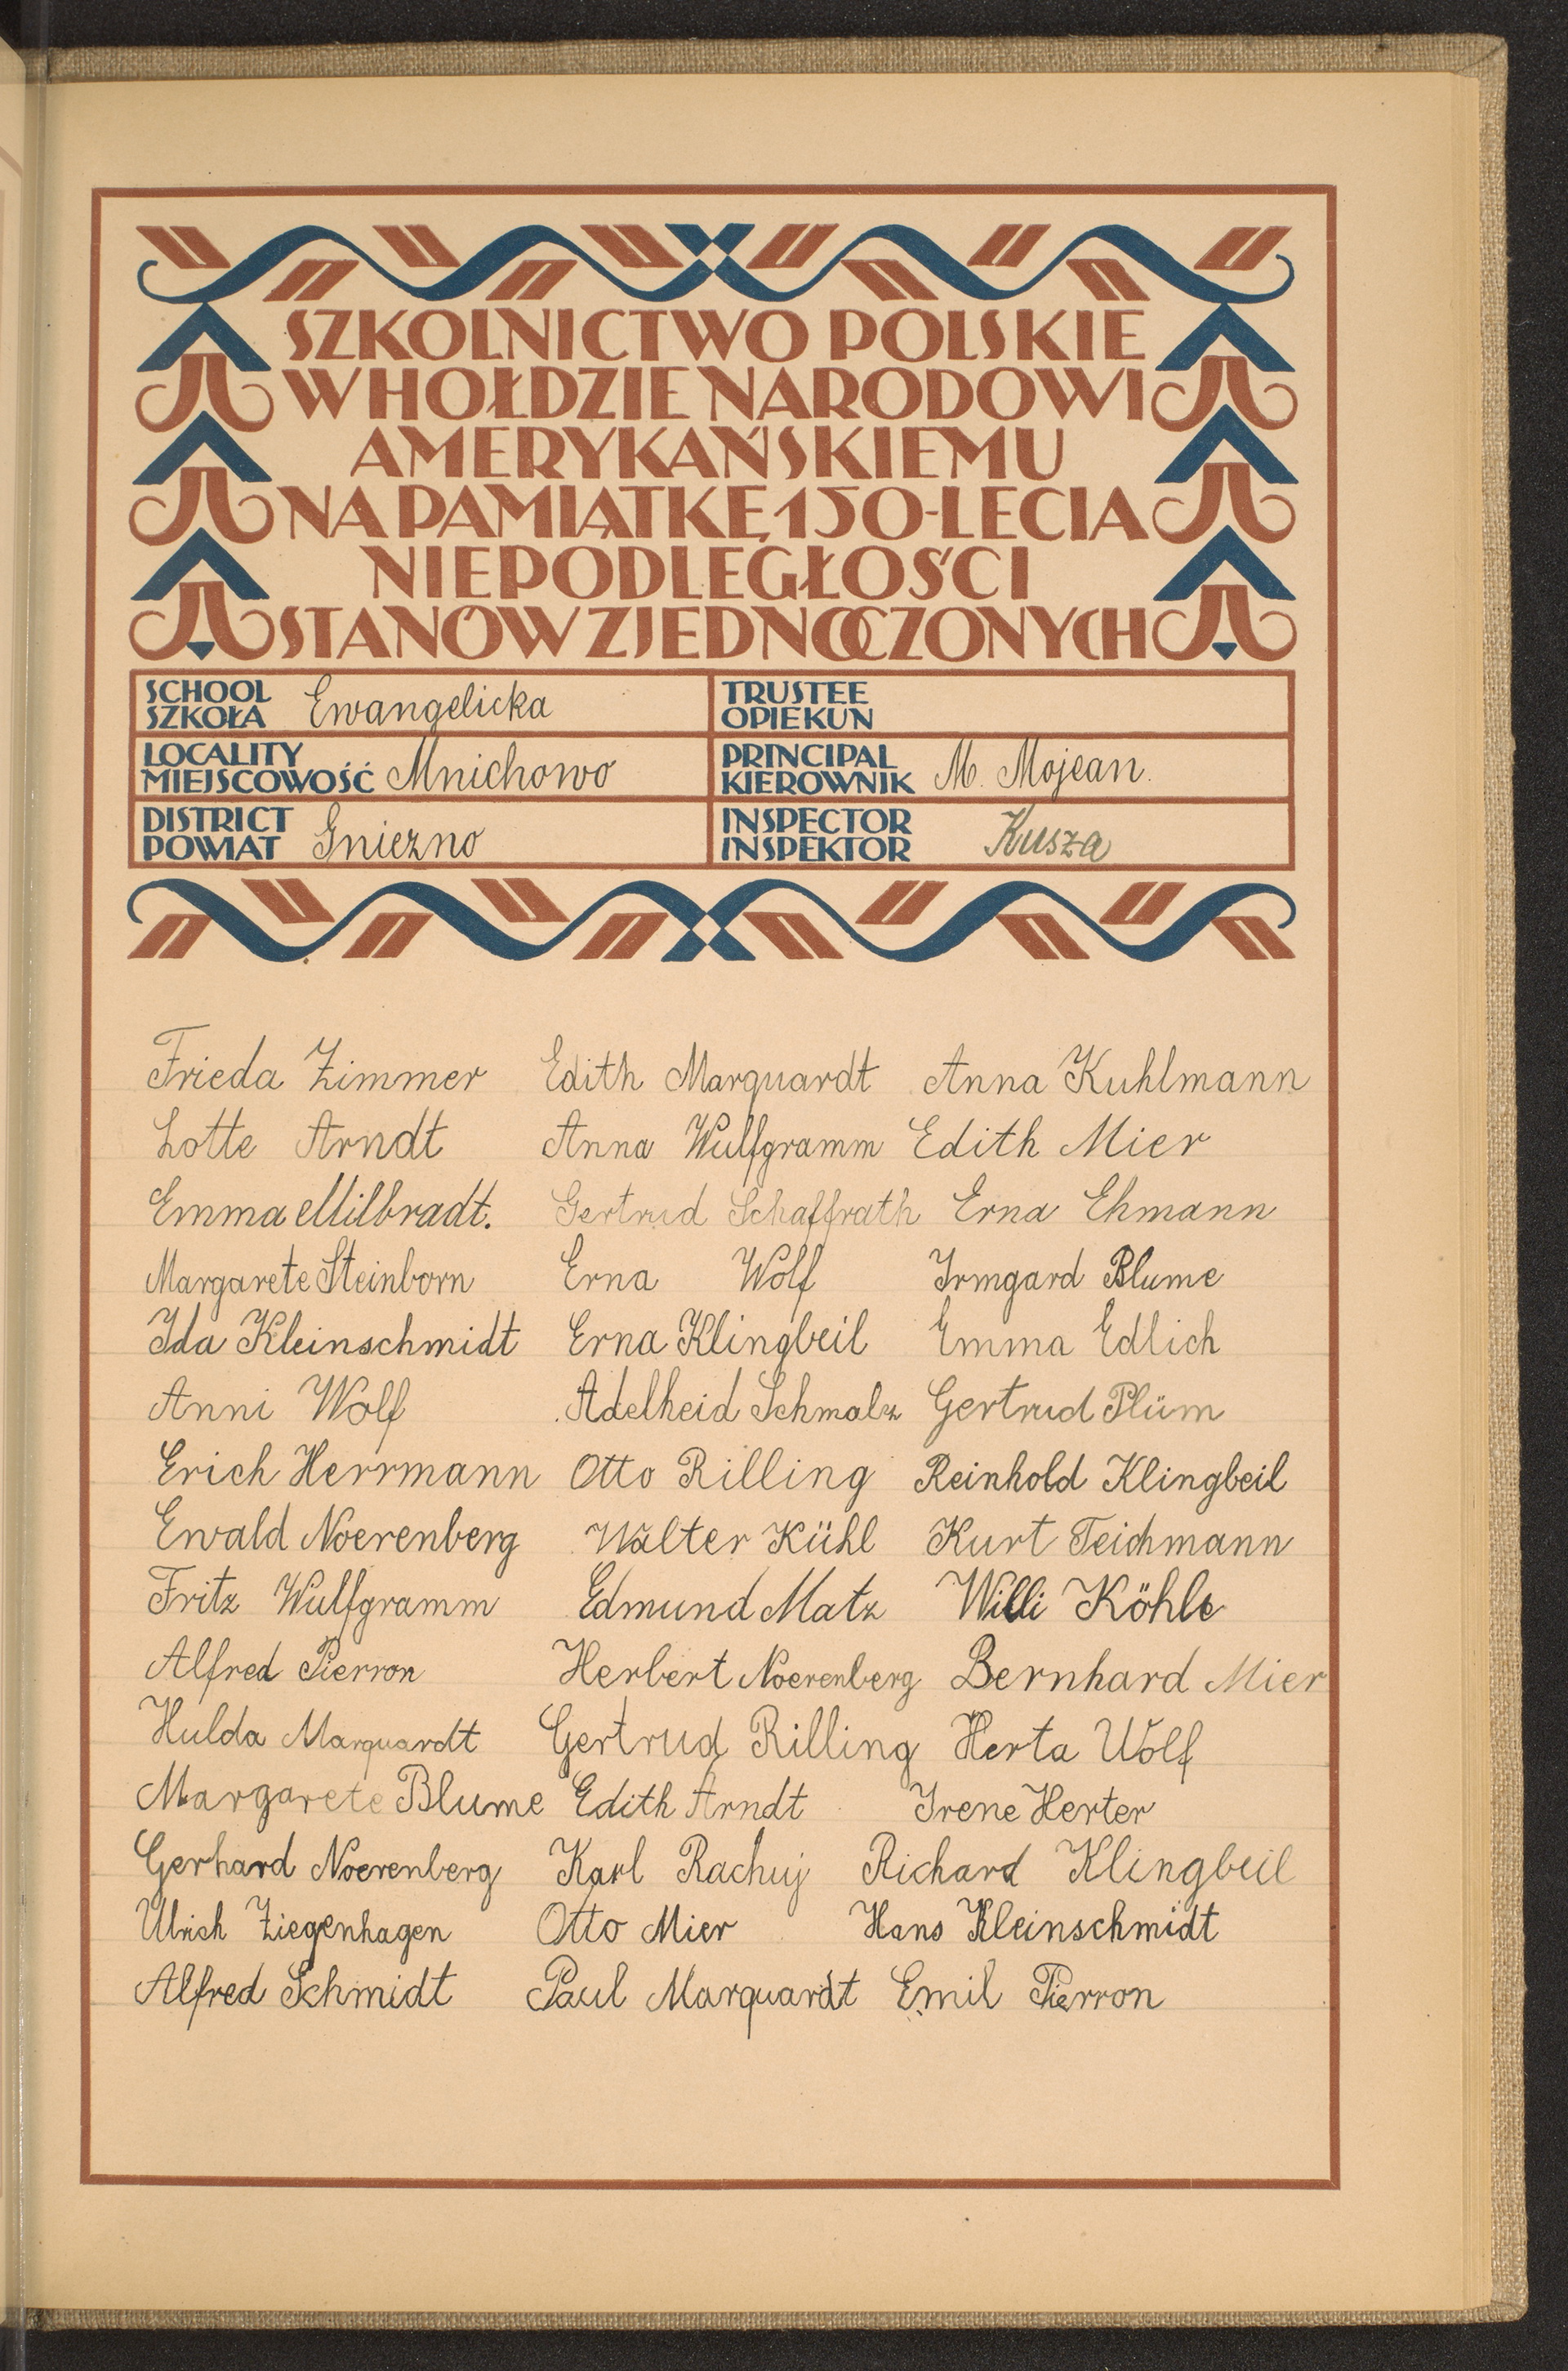 SZKOLNICTWO POLSKIE
W HOŁDZIE NARODOWI
AMERYKAŃSKIEMU
NA PAMIĄTKĘ 150-LECIA
NIEPODLEGŁOŚCI
STANÓW ZJEDNOCZONYCH
SCHOOL
SZKOŁA Ewangelicka
TRUSTEE
OPIEKUN
LOCALITY
MIEJSCOWOŚĆ Mnichowo
PRINCIPAL
KIEROWNIK M. Mojean.
DISTRICT
POWIAT Gniezno
INSPECTOR
INSPEKTOR Kusza
Frieda Zimmer Edith Marquardt Anna Kuhlmann
Lotte Arndt Anna Wulfgramm Edith Mier
Emma Milbradt. Gertrud Schaffrath Erna Ehmann
Margarete Steinborn Erna Wolf Irmgard Blume
Ida Kleinschmidt Erna Klingbeil Emma Edlich
Anni Wolf Adelheid Schmalz Gertrud Plüm
Erich Herrmann Otto Rilling Reinhold Klingbeil
Ewald Noerenberg Walter Kühl Kurt Teichmann
Fritz Wulfgramm Edmund Matz Willi Köhle
Alfred Pierron Herbert Noerenberg Bernhard Mier
Hulda Marquardt Gertrud Rilling Herta Wolf
Margarete Blume Edith Arndt Irene Herter
Gerhard Noerenberg Karl Rachuj Richard Klingbeil
Ulrich Ziegenhagen Otto Mier Hans Kleinschmidt
Alfred Schmidt Paul Marquardt Emil Pierron